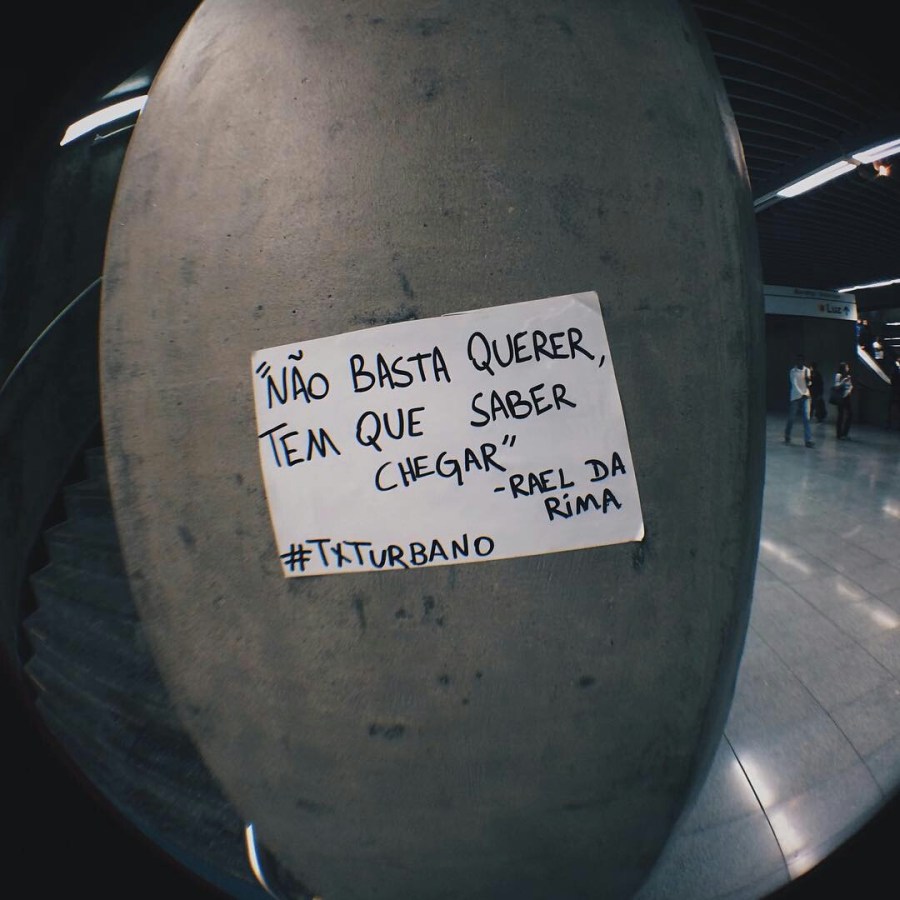 "NÃO BASTA QUERER,
TEM QUE SABER
CHEGAR"
-RAEL DA
RIMA
#TXTURBANO
Luz